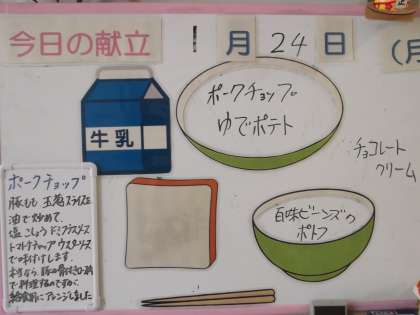 今日の献立 1月24日 (月
牛乳
ポークチョップ
ゆでポテト
チョコレート
クリーム
百味ビーンズの
ポトフ
ポークチョップ
豚もも 玉葱スライスを
油で炒めて、
塩こしょうドミグラスソース
トマトケチャップ ウスターソース
で味付けします。
本来なら、豚の骨付きロース肉
で料理するのですが、
給食用にアレンジしました